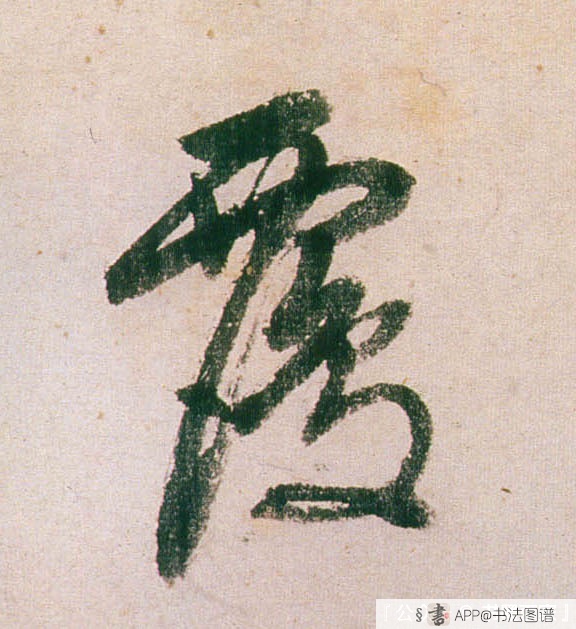 覆
APP@书法图谱